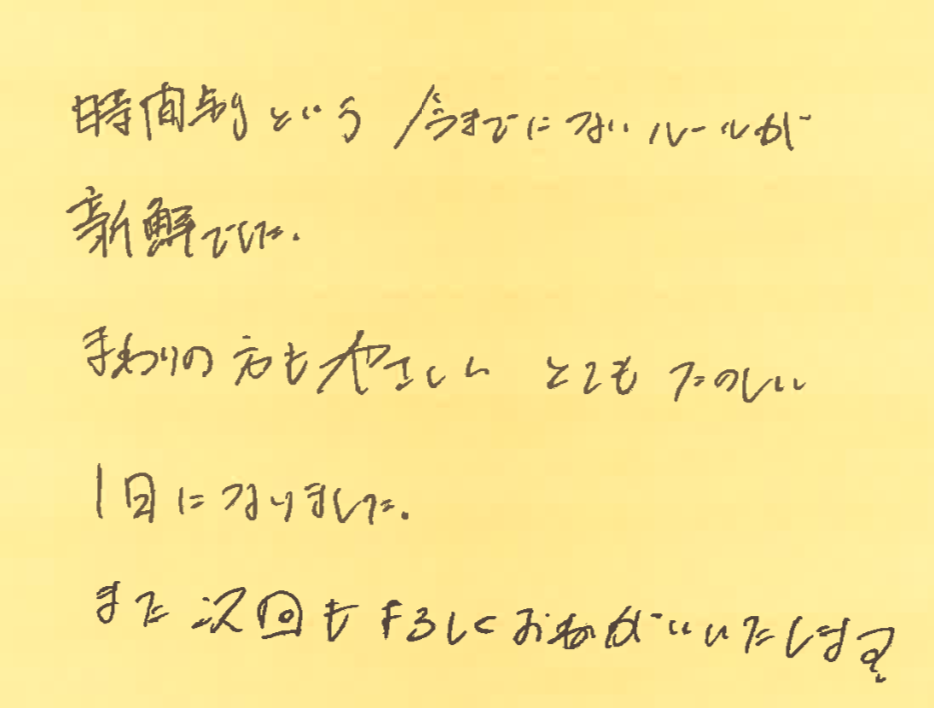 時間制という 今までにないルールが
新鮮でした.
まわりの方もやさしい とても たのしい
1日になりました.
また次回もよろしくおねがいいたします.